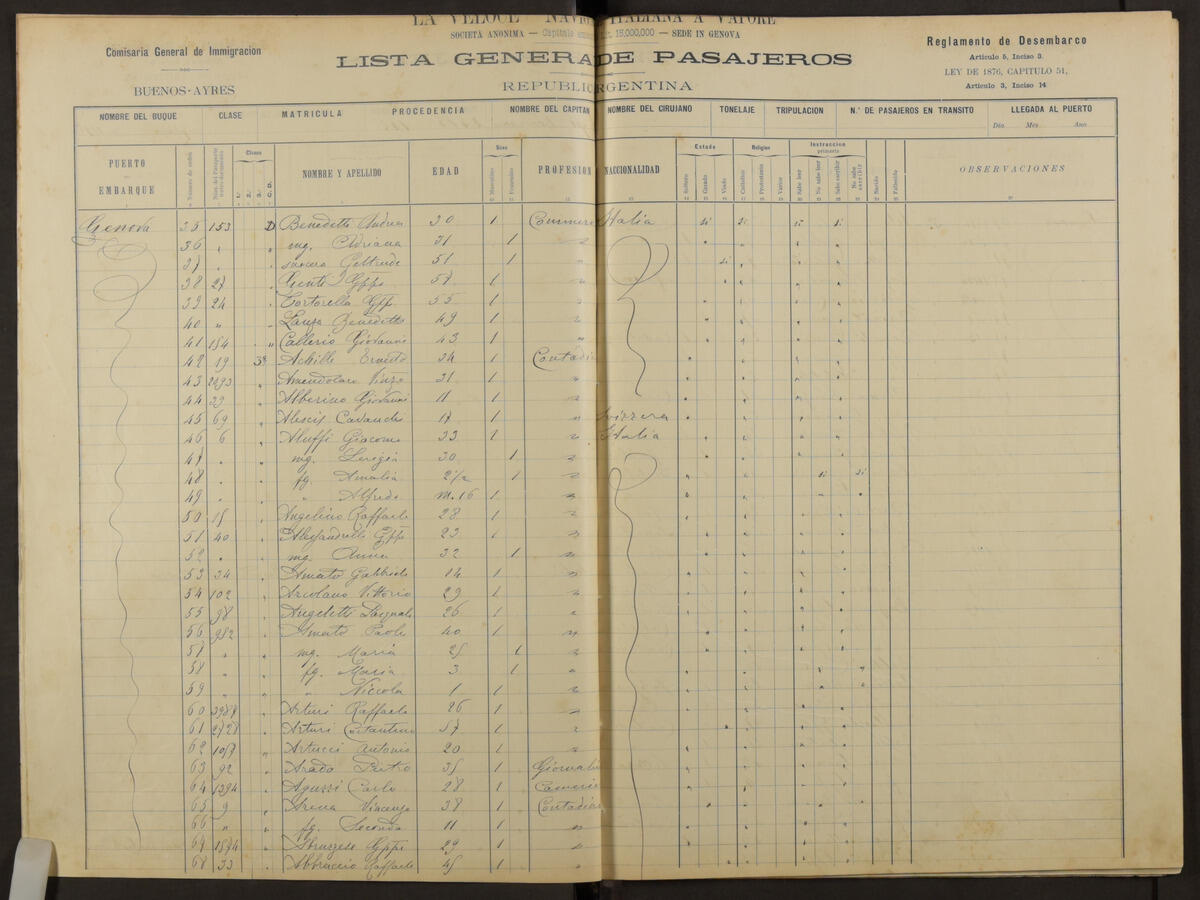 LA VELOCE NAVI ITALIANA A VAPORE
SOCIETÀ ANONIMA — Capitale 15,000,000 — SEDE IN GENOVA
Comisaria General de Immigracion
BUENOS-AYRES
LISTA GENERA DE PASAJEROS
REPUBLIC RGENTINA
Reglamento de Desembarco
Articulo 5, Inciso 3.
LEY DE 1876, CAPITULO 51,
Articulo 3, Inciso 14
NOMBRE DEL BUQUE CLASE MATRICULA PROCEDENCIA NOMBRE DEL CAPITAN NOMBRE DEL CIRUJANO TONELAJE TRIPULACION N.° DE PASAJEROS EN TRANSITO LLEGADA AL PUERTO
Dia Mes Ano
PUERTO EMBARQUE Numero de orden Clases 1.ª 2.ª 3.ª C. D. NOMBRE Y APELLIDO EDAD Sexo Masculino Femenino PROFESION NACCIONALIDAD Estado Soltero Casado Viudo Religion Catholico Protestante Varios Instruccion primaria Sabe leer No sabe leer Sabe escribir No sabe escribir Nacido Fallecido OBSERVACIONES
Genova 35 153 D Benedetti Andrea 30 1 Commerc Italia si si si si
36 " " mg. Adriana 31 1 "
37 " " suocera Geltrude 51 1 " si
38 27 " Gppe 57 1 "
39 24 " Tortorella Gppe 55 1 "
40 " " Lanza Benedetto 49 1 "
41 154 " Giovanni 43 1 "
42 19 3ª Achille Ernesto 34 1 Contadi
43 2293 " Amendolara Vinzo 31 1 "
44 29 " Alberino Giovanni 11 1 "
45 69 " Alescis 17 1 " Svizzera
46 6 " Aluffi Giacomo 33 1 " Italia
47 " " mg. Luigia 30 1 "
48 " " fg. Amalia 2 1/2 1 " si si
49 " " " Alfredo m. 16 1 "
50 15 " Angelino Raffaele 28 1 "
51 40 " Alessandrelli Gppe 23 1 "
52 " " mg. Anna 32 1 "
53 34 " Amato Gabriele 14 1 "
54 102 " Arcolano Vittorio 29 1 "
55 98 " Angeletti Pasquale 26 1 "
56 982 " Amato Paolo 40 1 "
57 " " mg. Maria 25 1 "
58 " " fg. Maria 3 1 "
59 " " " Niccola 1 1 "
60 3987 " Arturi Raffaele 26 1 "
61 2728 " Arturi Costantino 57 1 "
62 1057 " Artucci Antonio 20 1 "
63 92 " Arado Pietro 35 1 Giornali
64 1394 " Aguzzi Carlo 28 1 Camerie
65 9 " Arena Vincenzo 38 1 Contadin
66 " " fg. Seconda 11 1 "
67 1574 " Abruzzese Gppe 29 1 "
68 33 " Abbruccio Raffaele 45 1 "